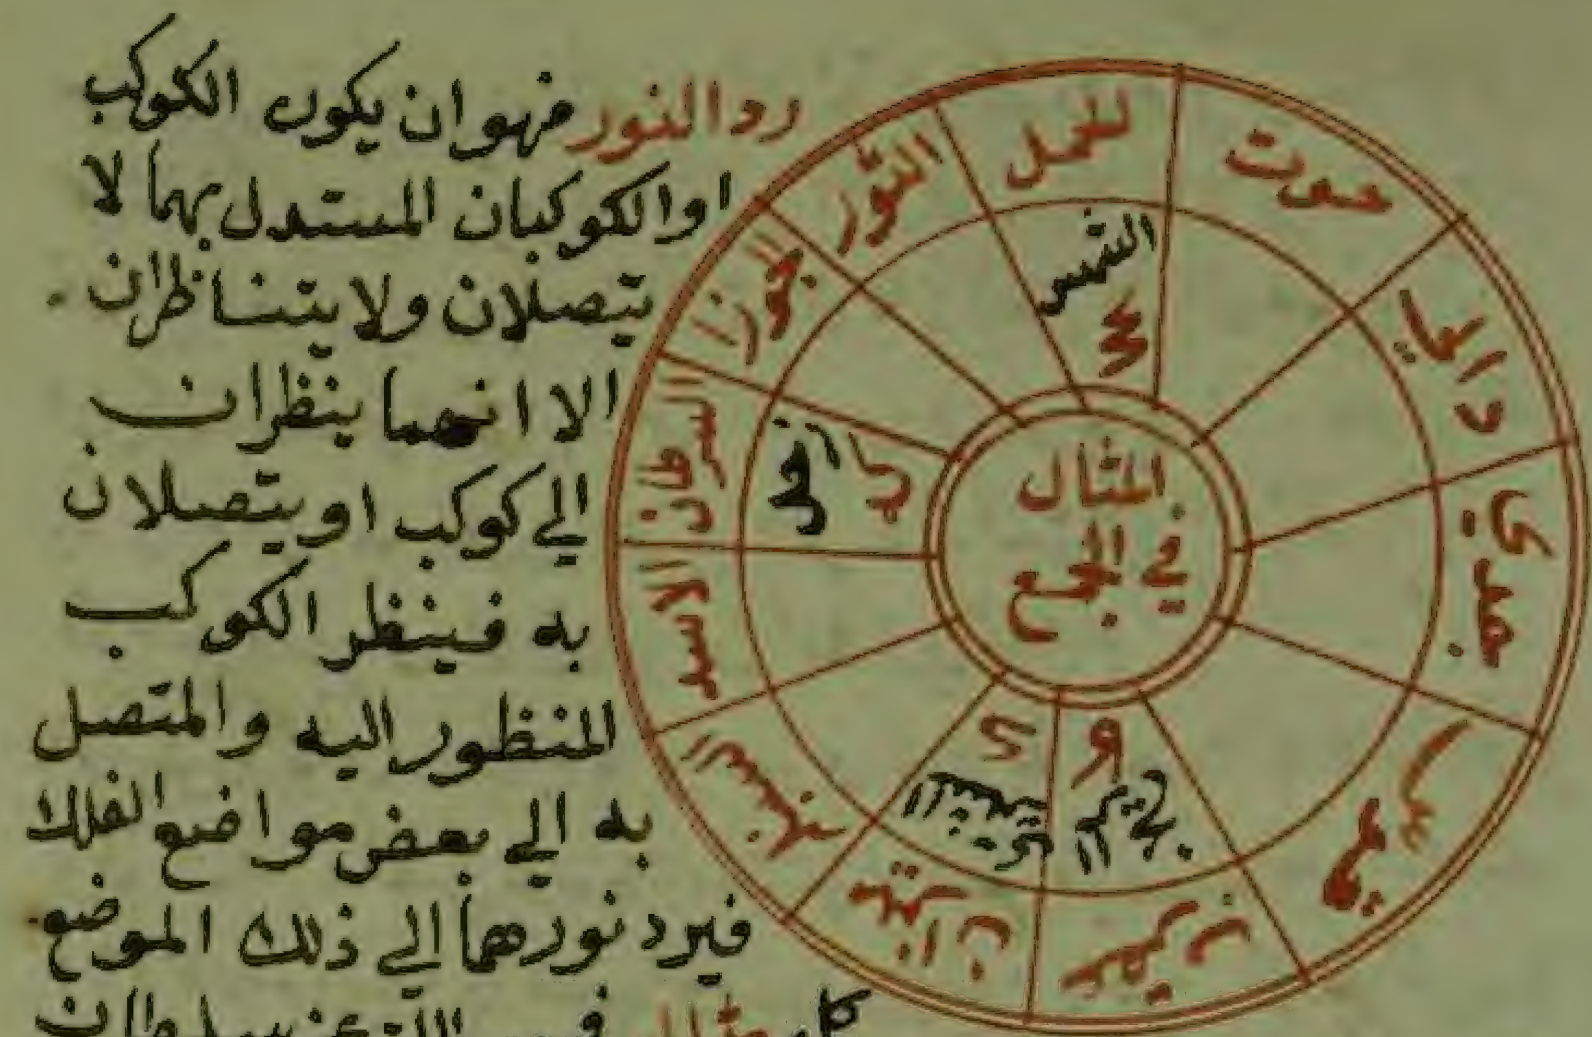 رد النور فهو ان يكون الكوكب
او الكوكبان المستدل بهما لا
يتصلان ولا يتناظران
الا انهما ينظران
الي كوكب او يتصلان
به فينظر الكوكب
المنظور اليه والمتصل
به الي بعض مواضع الفلك
فيرد نورهما الي ذلك الموضع
المثال
في الجمع
الحمل
الثور
الجوزا
السرطان
الاسد
السنبله
ميزان
عقرب
قوس
جدي
دالي
حوت
الشمس
زحل
المريخ